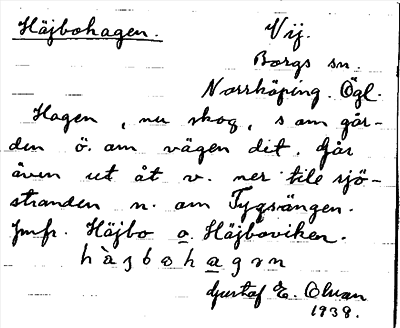 Häjbohagen.
Vij.
Borgs sn.
Norrköping. Ögl.
Hagen, nu skog, s om går-
den ö. om vägen dit. Går
även ut åt v. ner till sjö-
stranden n. om Tygsängen.
Jmfr. Häjbo o. Häjboviken.
Gustaf E. Olsson
1939.